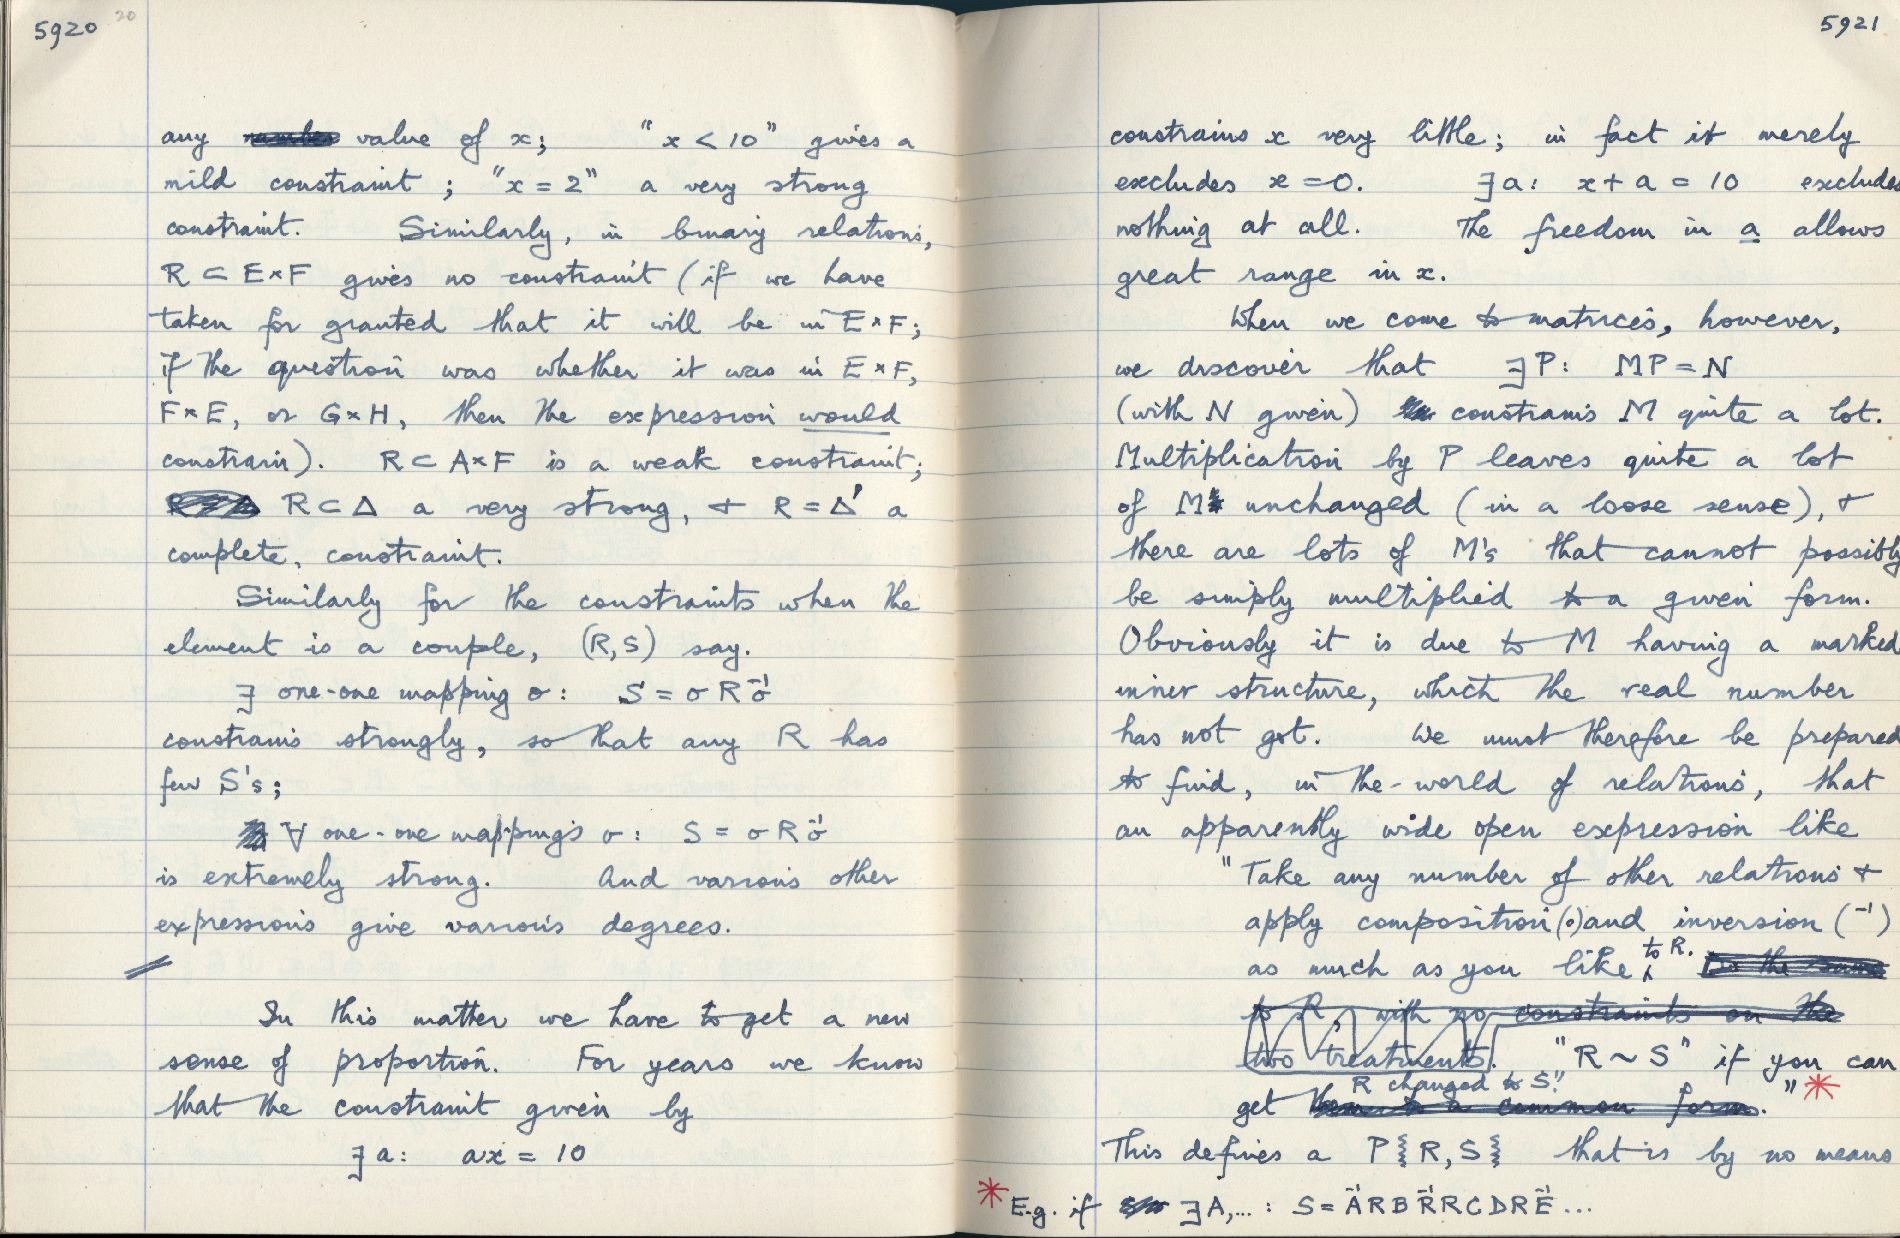 5920 20
any number value of x; "x < 10" gives a
mild constraint ; "x = 2" a very strong
constraint. Similarly, in binary relations,
R ⊂ E×F gives no constraint (if we have
taken for granted that it will be in E×F;
if the question was whether it was in E×F,
F×E, or G×H, then the expression would
constrain). R ⊂ A×F is a weak constraint;
R ⊂ Δ a very strong, + R = Δ' a
complete, constraint.
Similarly for the constraints when the
element is a couple, (R,S) say.
∃ one-one mapping σ: S = σ R σ⁻¹
constrains strongly, so that any R has
few S's;
∀ one-one mappings σ: S = σ R σ⁻¹
is extremely strong. And various other
expressions give various degrees.
In this matter we have to get a new
sense of proportion. For years we know
that the constraint given by
∃ a: ax = 10
5921
constrains x very little; in fact it merely
excludes x = 0. ∃ a: x + a = 10 excludes
nothing at all. The freedom in a allows
great range in x.
When we come to matrices, however,
we discover that ∃ P: MP = N
(with N given) constrains M quite a lot.
Multiplication by P leaves quite a lot
of M unchanged (in a loose sense), +
there are lots of M's that cannot possibly
be simply multiplied to a given form.
Obviously it is due to M having a marked
inner structure, which the real number
has not got. We must therefore be prepared
to find, in the world of relations, that
an apparently wide open expression like
"Take any number of other relations +
apply composition (∘) and inversion (⁻¹)
as much as you like to R. Do the same
to R, with no constraints on the
two treatments. "R ~ S" if you can
get R changed to S." them to a common form." *
This defines a P{R,S} that is by no means
* E.g. if ∃ A,... : S = A⁻¹ R B R⁻¹ R C D R E⁻¹ ...